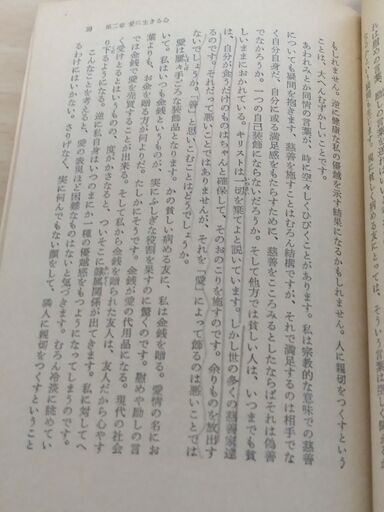 39　第二章 愛に生きる心
もしれません。逆に健康な私の優越を示す結果になるかもしれません。人に親切をつくすという
ことは、大へんむずかしいことです。
あわれみとか同情の言葉が、時に空々しくひびくことがあります。私は宗教的な意味での慈善
についても疑問を抱きます。慈善を施すことはむろん結構ですが、それで満足するのは相手でな
く自分自身だ、自分に或る満足感をもたらすために、慈善をこころみるとしたならばそれは偽善
でなかろうか。一つの自己装飾にならないだろうか。そして他方では貧しい人は、いつまでも貧
しいままにおかれている。キリストは一切を棄てよと説いています。しかし世の多くの慈善家達
は、自分が食うだけのものはちゃんと確保して、そのおこりを施すのです。余りものを放出す
るだけです。それだって悪いことではありませんが、それを「愛」によって飾るのは悪いことでは
ないでしょうか。「善」と思いこむことはどうでしょうか。
愛は屡々手ごろな装飾品となります。かの貧しい病める友に、私は金銭を贈る。愛情の名にお
いて。私はいつも金銭というものが、実にふしぎな役割を果すのに驚くのです。慰めや励しの言
葉よりも、お金を贈る方が何よりだ。たしかにそうです。金銭が愛の代用品になる。現代の社会
では金銭で愛を売買することが出来る。そして私から金銭を贈られた友人は、友人だから心やす
く受けとるとはいうものの、度がかさなると、ついそこに隷属関係が出てきます。私に対してへ
り下るようになる。逆に私自身はいつのまにか一種の優越感をもつようになってしまうのです。
こんなことを考えると、愛の表現ほど困難なものはないと気づきます。むろん冷淡に眺めてい
るわけにはいかない。さりげなく、実に何んでもない顔をして、隣人に親切をつくすということ